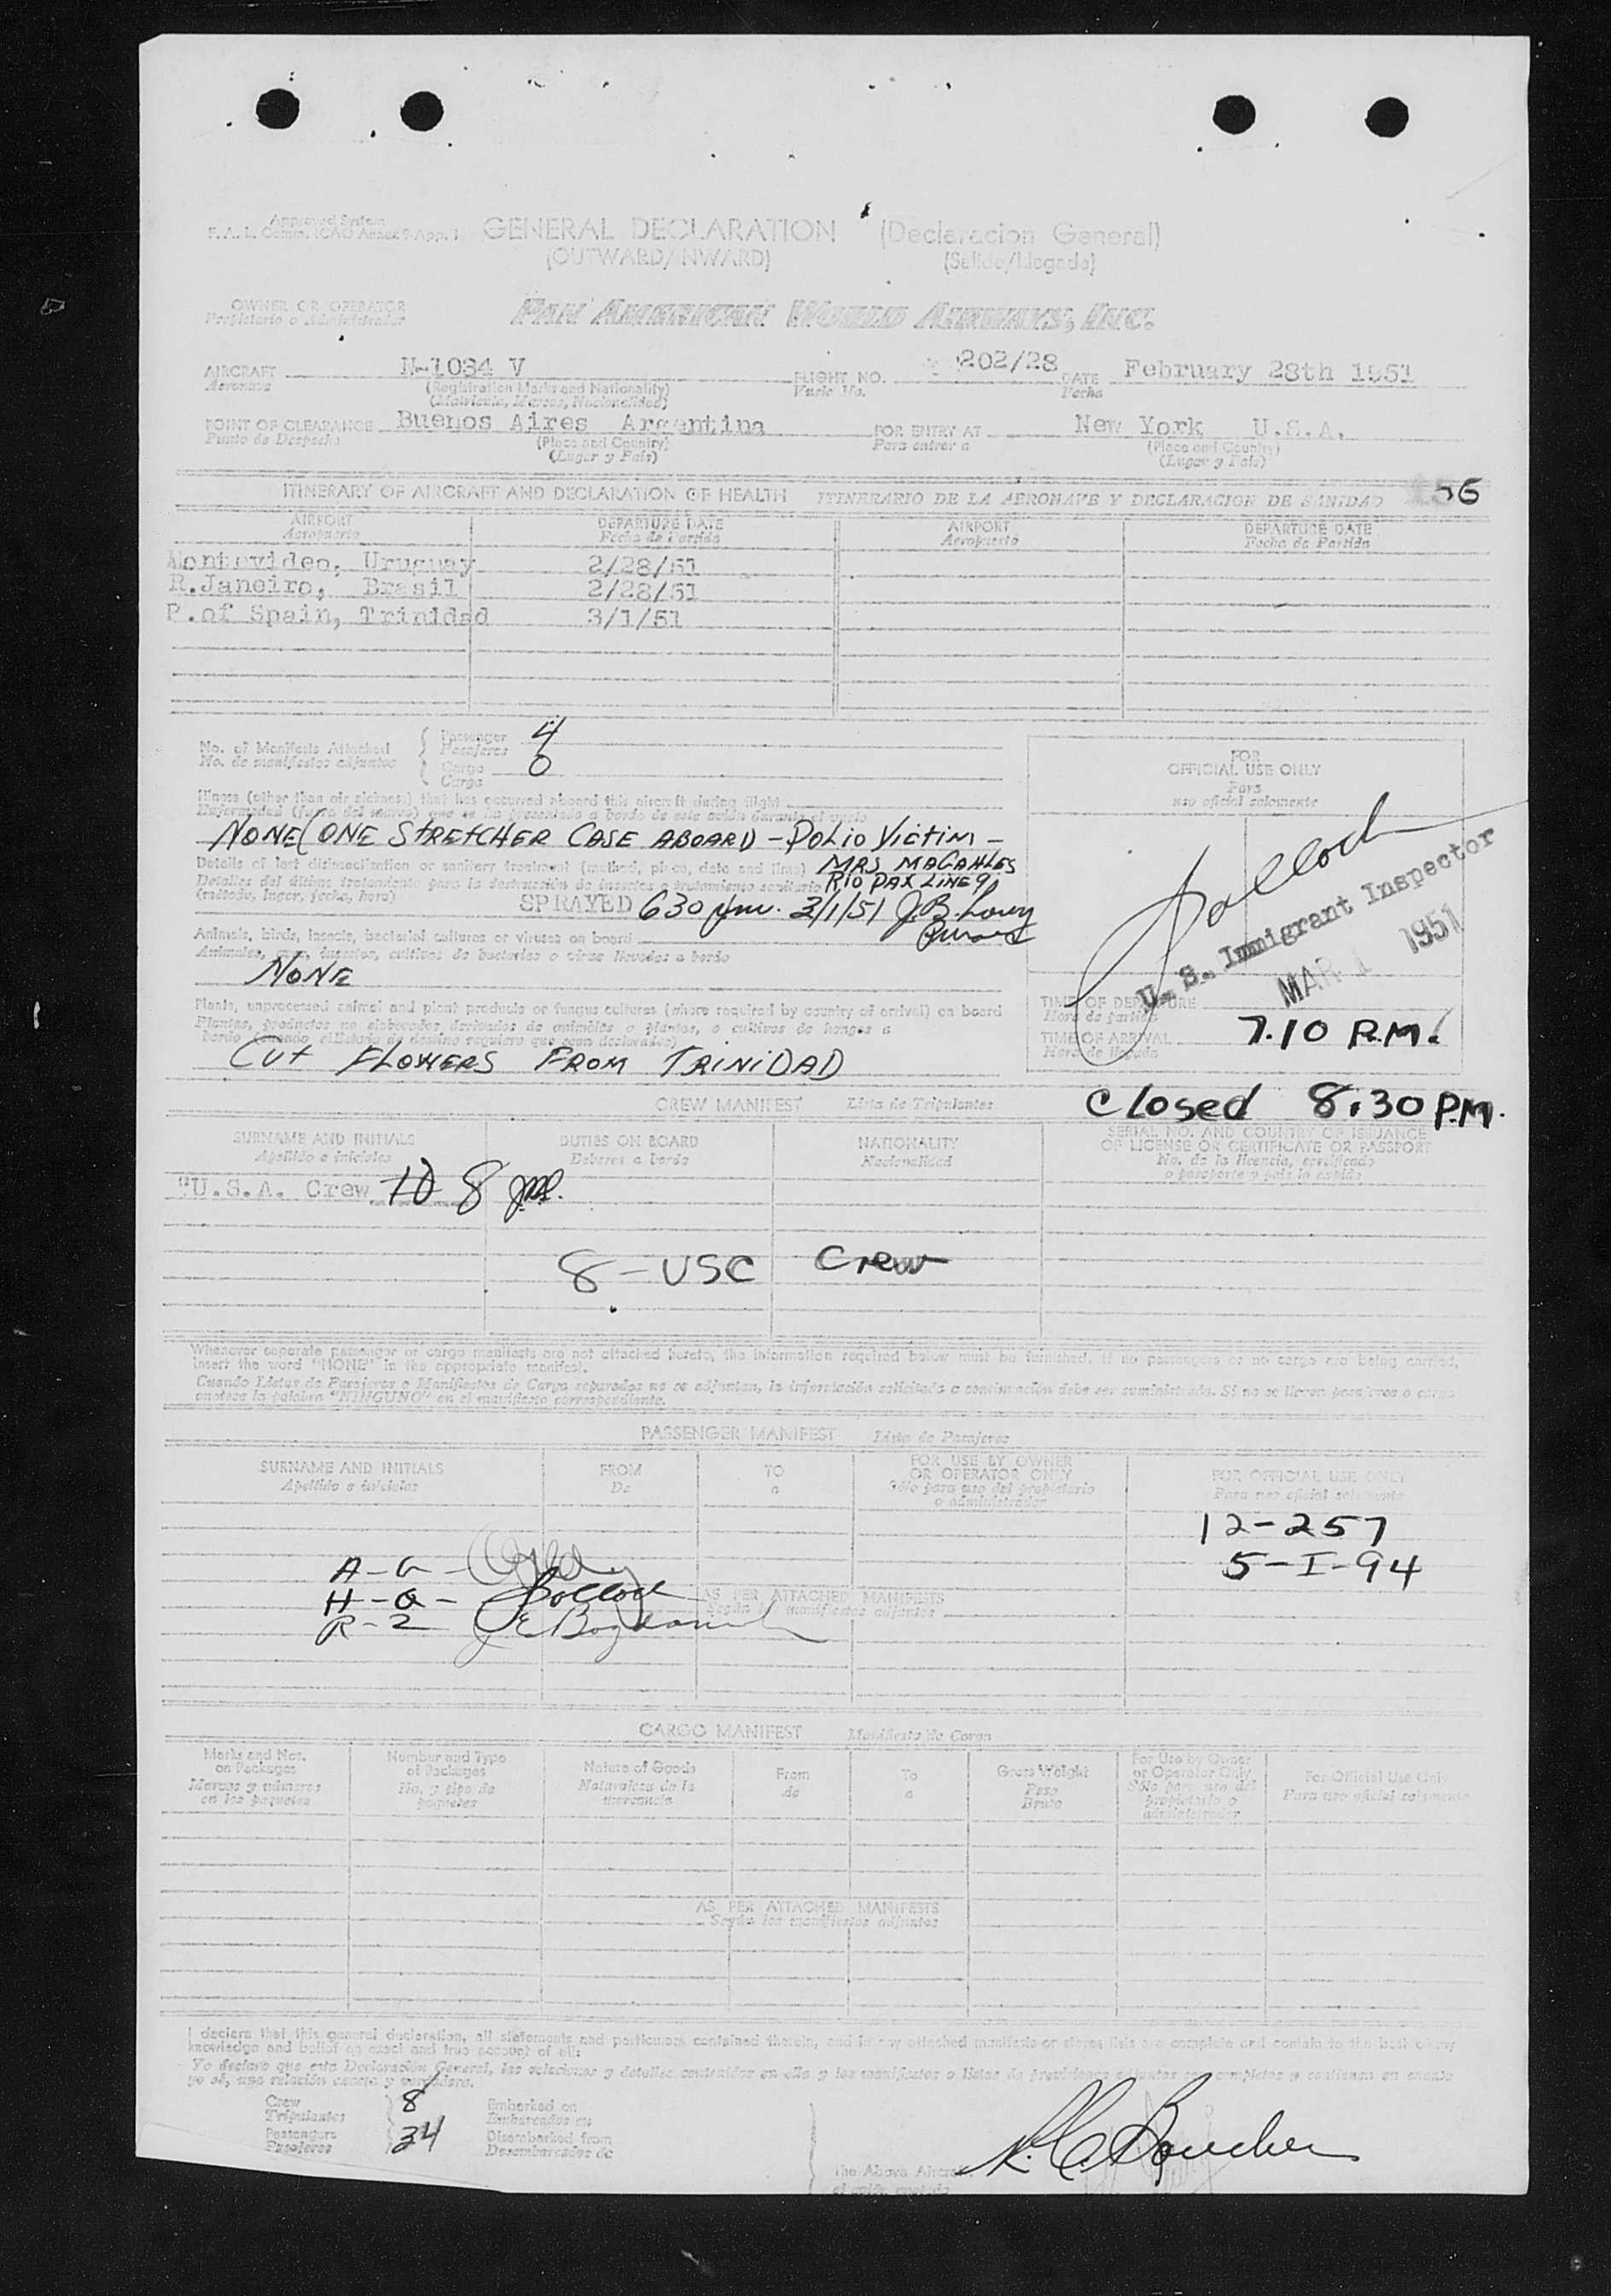 Approved System
F. A. L. Comm. ICAO Annex 9-App. 1
GENERAL DECLARATION (Declaracion General)
(OUTWARD/INWARD) (Salida/Llegada)
OWNER OR OPERATOR
Propietario o Administrador
PAN AMERICAN WORLD AIRWAYS, INC.
AIRCRAFT N-1034 V FLIGHT NO. 202/28 DATE February 28th 1951
Aeronave (Registration Marks and Nationality) Vuelo No. Fecha
(Matricula, Marcas, Nacionalidad)
POINT OF CLEARANCE Buenos Aires Argentina FOR ENTRY AT New York U.S.A.
Punto de Despacho (Place and Country) Para entrar a (Place and Country)
(Lugar y Pais) (Lugar y Pais)
ITINERARY OF AIRCRAFT AND DECLARATION OF HEALTH ITINERARIO DE LA AERONAVE Y DECLARACION DE SANIDAD 156
AIRPORT DEPARTURE DATE AIRPORT DEPARTURE DATE
Aeropuerto Fecha de Partida Aeropuerto Fecha de Partida
Montevideo, Uruguay 2/28/51
R.Janeiro, Brasil 2/28/51
P.of Spain, Trinidad 3/1/51
No. of Manifests Attached Passenger 4
No. de manifiestos adjuntos Pasajeros
Cargo 0
Carga
FOR
OFFICIAL USE ONLY
Para
uso oficial solamente
Illness (other than air sickness) that has occurred aboard this aircraft during flight
Enfermedad (fuera del mareo) que se ha presentado a bordo de este avión durante el vuelo
NONE (ONE STRETCHER CASE ABOARD - POLIO VICTIM -
Details of last disinsectization or sanitary treatment (method, place, date and time) MRS MAGAHLES
Detalles del último tratamiento para la destrucción de insectos o tratamiento sanitario RIO PAX LINE 9)
(método, lugar, fecha, hora) SPRAYED 630 pm. 3/1/51 J.B. Lowry
Purser
Pollock
U. S. Immigrant Inspector
MAR 1 1951
Animals, birds, insects, bacterial cultures or viruses on board
Animales, aves, insectos, cultivos de bacterias o virus llevados a bordo
NONE
Plants, unprocessed animal and plant products or fungus cultures (where required by country of arrival) on board
Plantas, productos no elaborados derivados de animales o plantas, o cultivos de hongos a
bordo (cuando el Estado de destino requiera que sean declarados)
CUT FLOWERS FROM TRINIDAD
TIME OF DEPARTURE
Hora de partida
TIME OF ARRIVAL 7.10 P.M.
Hora de llegada
Closed 8:30 P.M.
CREW MANIFEST Lista de Tripulantes
SURNAME AND INITIALS DUTIES ON BOARD NATIONALITY SERIAL NO. AND COUNTRY OF ISSUANCE
Apellido e iniciales Deberes a bordo Nacionalidad OF LICENSE OR CERTIFICATE OR PASSPORT
No. de la licencia, certificado
o pasaporte y pais lo expide
"U.S.A. Crew 10 8
8 - USC Crew
Whenever separate passenger or cargo manifests are not attached hereto, the information required below must be furnished. If no passengers or no cargo are being carried,
insert the word "NONE" in the appropriate manifest.
Cuando Listas de Pasajeros o Manifiestos de Carga separados no se adjuntan, la información solicitada a continuación debe ser suministrada. Si no se llevan pasajeros o carga
anotese la palabra "NINGUNO" en el manifiesto correspondiente.
PASSENGER MANIFEST Lista de Pasajeros
SURNAME AND INITIALS FROM TO FOR USE BY OWNER OR OPERATOR ONLY FOR OFFICIAL USE ONLY
Apellido e iniciales De a Sólo para uso del propietario o administrador Para uso oficial solamente
12-257
5-I-94
A-G-
H-Q- Pollock
R-Z J E
AS PER ATTACHED MANIFESTS
Según los manifiestos adjuntos
CARGO MANIFEST Manifiesto de Carga
Marks and Nos. on Packages Number and Type of Packages Nature of Goods From To Gross Weight For Use by Owner or Operator Only For Official Use Only
Marcas y números en los paquetes No. y tipo de paquetes Naturaleza de la mercancia de a Peso Bruto Sólo para uso del propietario o administrador Para uso oficial solamente
AS PER ATTACHED MANIFESTS
Según los manifiestos adjuntos
I declare that this general declaration, all statements and particulars contained therein, and in any attached manifests or stores lists are complete and contain to the best of my
knowledge and belief an exact and true account of all:
Yo declaro que esta Declaración General, las relaciones y detalles contenidos en ella y los manifiestos o listas de provisiones adjuntas son completos y contienen en cuanto
yo sé, una relación exacta y verdadera.
Crew 8 Embarked on
Tripulantes Embarcados en
Passengers 34 Disembarked from
Pasajeros Desembarcados de
The Above Aircraft
K.C. Boucher